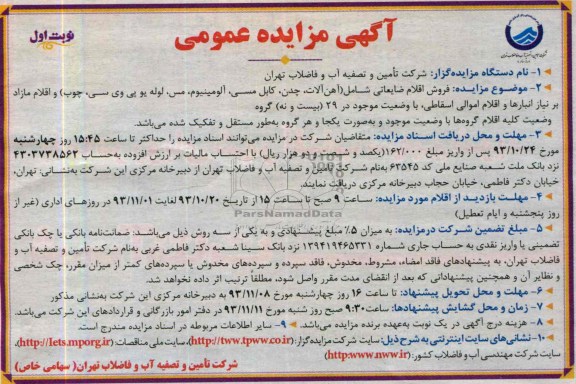 آگهی مزایده عمومی
نوبت اول
۱- نام دستگاه مزایده‌گزار: شرکت تأمین و تصفیه آب و فاضلاب تهران
۲- موضوع مزایـده: فروش اقلام ضایعاتی شامل(آهن‌آلات، چدن، کابل مسـی، آلومینیوم، مس، لوله یو پی وی سـی، چوب) و اقلام مازاد
بر نیاز انبارها و اقلام اموالی اسقاطی، با وضعیت موجود در ۲۹ (بیست و نه) گروه
وضعیت کلیه اقلام گروه‌ها با وضعیت موجود و به‌صورت یکجا و هر گروه به‌طور مستقل و تفکیک شده می‌باشد.
۳- مهلت و محل دریافت اسـناد مزایده: متقاضیان شـرکت در مزایده می‌توانند اسناد مزایده را حداکثر تا ساعت ۱۵:۴۵ روز چهارشنبه
مورخ ۹۳/۱۰/۲۴ پس از واریز مبلغ ۱۶۲/۰۰۰(یکصد و شصت و دو هزار ریال) با احتسـاب مالیات بر ارزش افزوده به‌حساب ۴۳۰۳۷۳۸۵۶۲
نزد بانک ملت شـعبه صنایع ملی کد ۶۳۵۴۵ به‌نام شـرکت تأمین و تصفیه آب و فاضلاب تهران از دبیرخانه مرکزی این شرکت به‌نشانی: تهران،
خیابان دکتر فاطمی، خیابان حجاب دبیرخانه مرکزی دریافت نمایند.
۴- مهلـت بازدید از اقلام مورد مزایده: سـاعت ۹ صبح تا ساعت ۱۵ از تاریـخ ۹۳/۱۰/۲۰ لغایت ۹۳/۱۱/۰۱ در روزهـای اداری (غیر از
روز پنجشنبه و ایام تعطیل)
۵- مبلغ تضمین شـرکت درمزایده: به میزان ۵٪ مبلغ پیشـنهادی و به یکی از سـه روش ذیل می‌باشد: ضمانت‌نامه بانکی یا چک بانکی
تضمینی یا واریز نقدی به حساب جاری شماره ۱۳۹۴۱۹۴۶۵۳۳۱ نزد بانک سـینا شـعبه دکتر فاطمی غربی به‌نام شرکت تأمین و تصفیه آب و
فاضلاب تهران، به پیشنهادهای فاقد امضاء، مشروط، مخدوش، فاقد سپرده و سپرده‌های مخدوش یا سپرده‌های کمتر از میزان مقرر، چک شخصی
و نظایر آن و همچنین پیشنهاداتی که بعد از انقضای مدت مقرر واصل شود، مطلقاً ترتیب اثر داده نخواهد شد.
۶- مهلت و محل تحویل پیشنهاد: تا ساعت ۱۶ روز چهارشنبه مورخ ۹۳/۱۱/۰۸ به دبیرخانه مرکزی این شرکت به‌نشانی مذکور
۷- زمان و محل گشایش پیشنهادها: ساعت ۹:۳۰ صبح روز شنبه مورخ ۹۳/۱۱/۱۱ در دفتر امور بازرگانی و قراردادهای این شرکت می‌باشد.
۸- هزینه درج آگهی در یک نوبت به‌عهده برنده مزایده می‌باشد. ۹- سایر اطلاعات مربوطه در اسناد مزایده مندرج است.
۱۰- نشانی‌های سایت اینترنتی به شرح ذیل: سایت شرکت مزایده‌گزار:(http://tww.tpww.co.ir)، سایت ملی مناقصات:(http://Iets.mporg.ir)،
سایت شرکت مهندسی آب و فاضلاب کشور:(http:www.nww.ir)
شرکت تأمین و تصفیه آب و فاضلاب تهران( سهامی خاص)
ParsNamadData